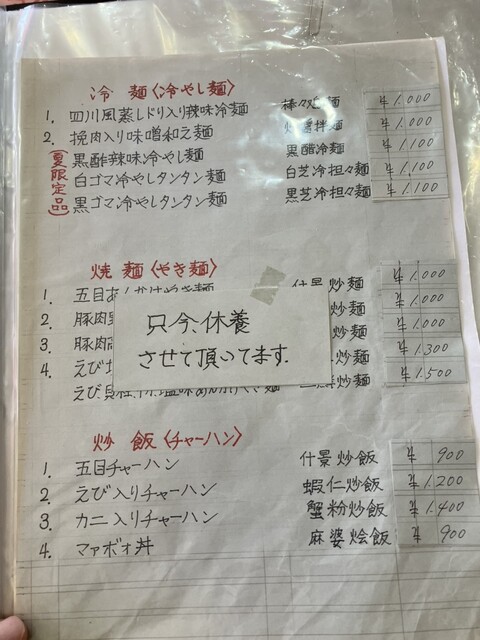 冷麺〈冷やし麺〉
1. 四川風蒸しドリ入り辣味冷麺 棒々鶏麺 ¥1.000
2. 挽肉入り味噌和え麺 拌麺 ¥1.100
(夏限定品)
黒酢辣味冷やし麺 黒醋冷麺 ¥1.100
白ゴマ冷やしタンタン麺 白芝冷担々麺 ¥1.100
黒ゴマ冷やしタンタン麺 黒芝冷担々麺 ¥1.100
焼麺〈やき麺〉
1. 五目あんかけやき麺 什景炒麺 ¥1.000
2. 豚肉 炒麺 ¥1.000
3. 豚肉 炒麺 ¥1.000
4. えび 炒麺 ¥1.300
えび 炒麺 ¥1.500
只今、休養
させて頂いてます.
炒飯〈チャーハン〉
1. 五目チャーハン 什景炒飯 ¥900
2. えび入りチャーハン 蝦仁炒飯 ¥1.200
3. カニ入りチャーハン 蟹粉炒飯 ¥1.400
4. マァボオ丼 麻婆烩飯 ¥900